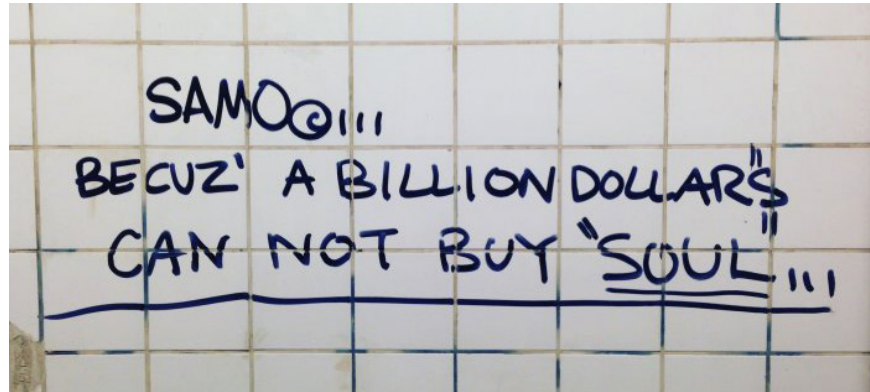 SAMO©...
BECUZ' A BILLION DOLLAR"S
CAN NOT BUY "SOUL"...